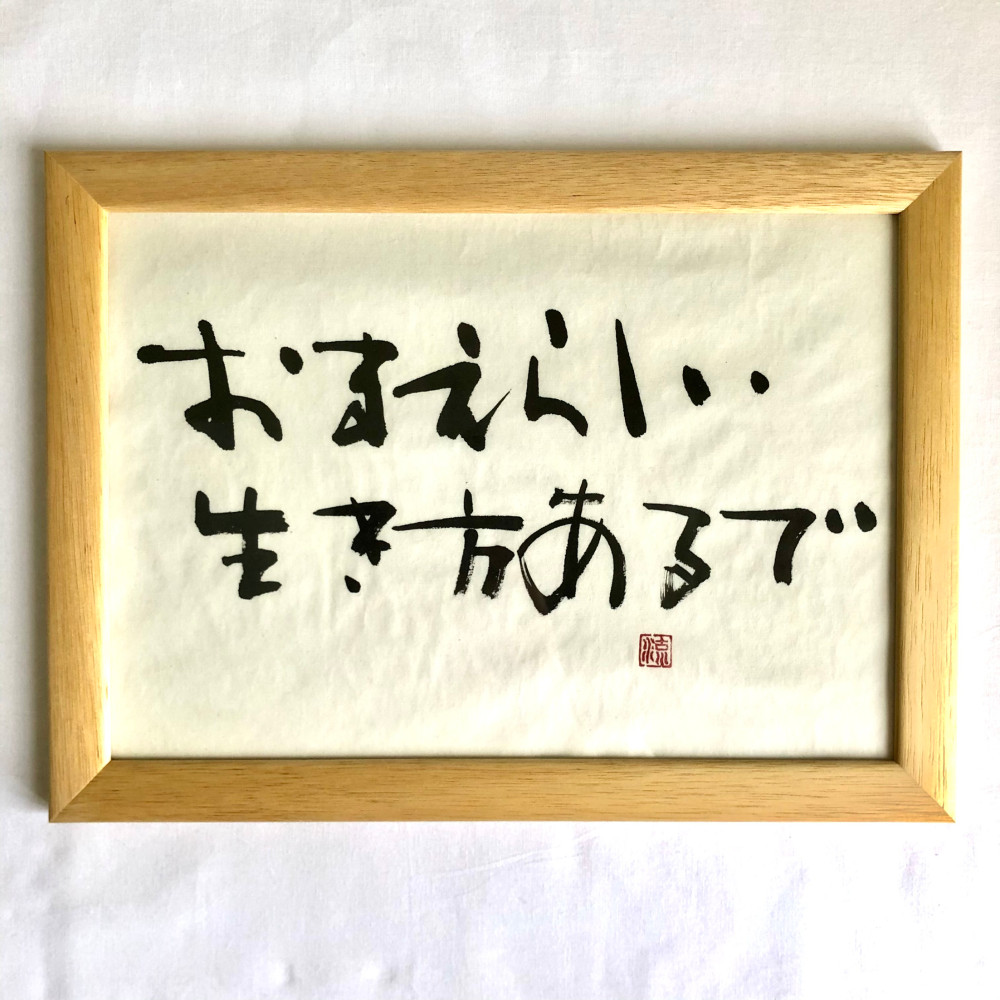 おまえらしい
生き方あるで